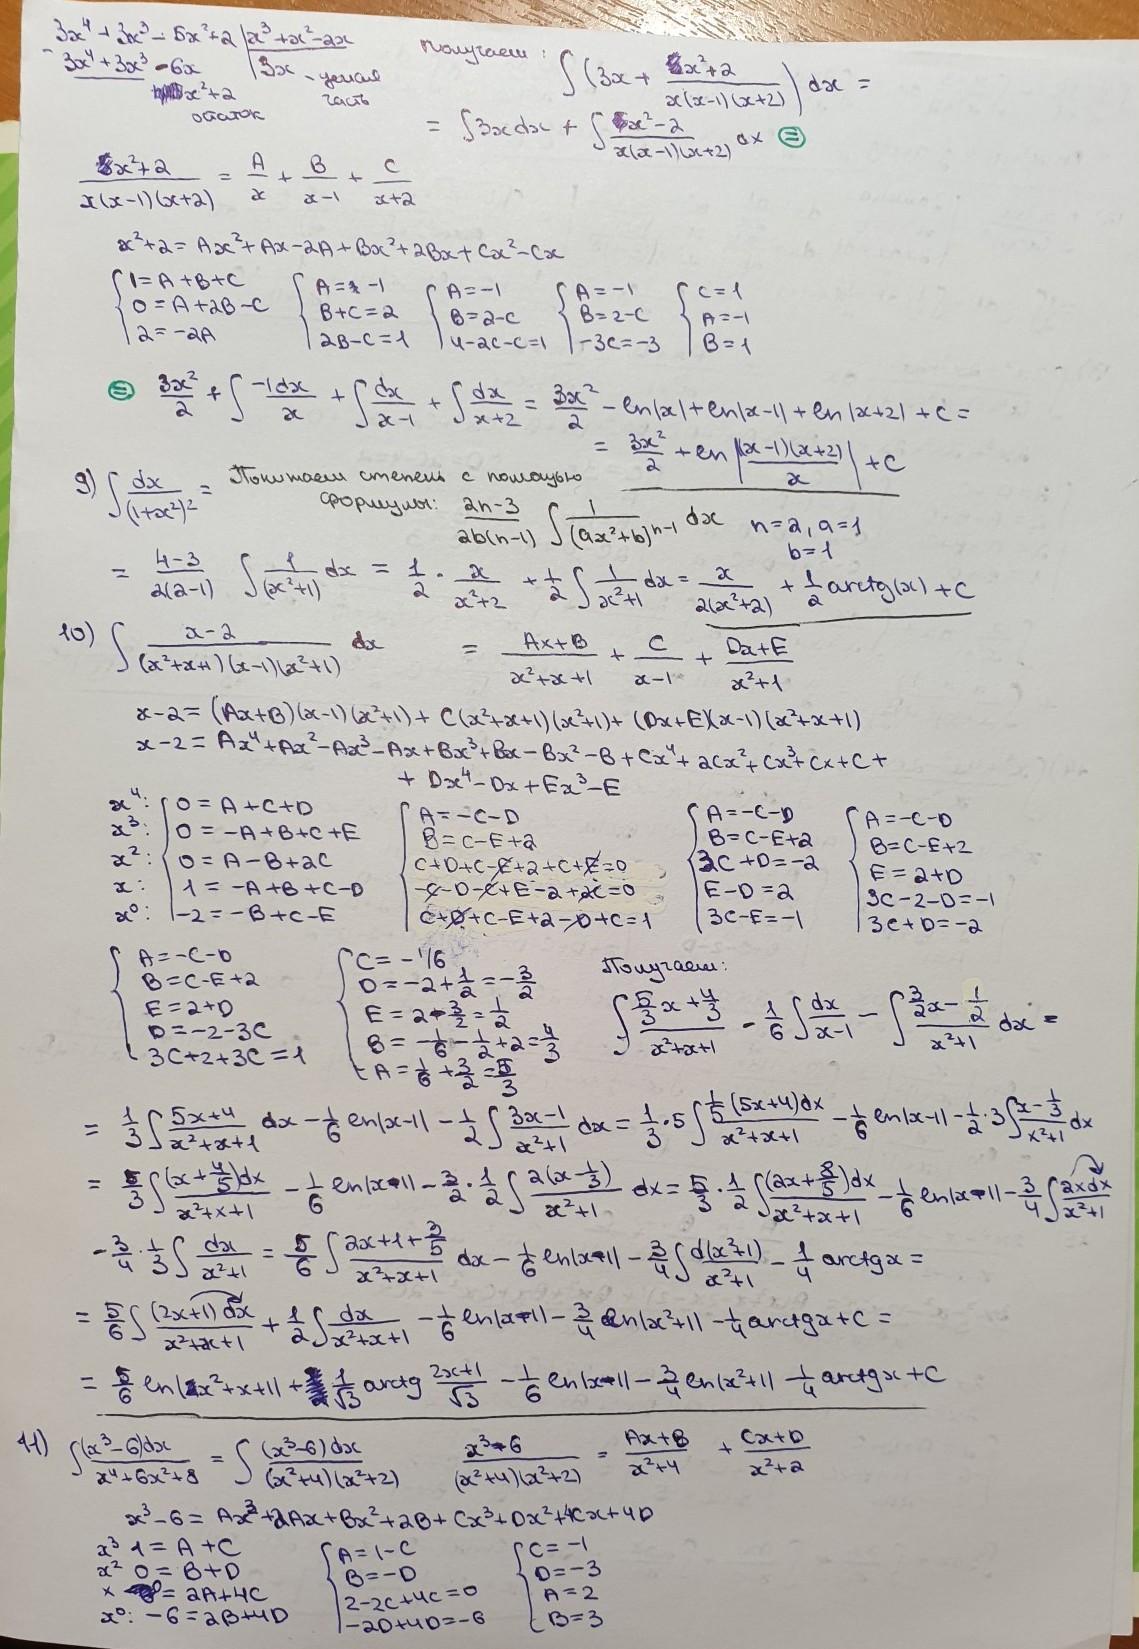 3x⁴ + 3x³ - 5x² + 2 | x³ + x² - 2x
3x⁴ + 3x³ - 6x | 3x - целая часть
x² + 2
остаток
Получаем: ∫(3x + (x²+2)/(x(x-1)(x+2))) dx =
= ∫3x dx + ∫(x²-2)/(x(x-1)(x+2)) dx =
(x²+2)/(x(x-1)(x+2)) = A/x + B/(x-1) + C/(x+2)
x²+2 = Ax²+Ax-2A+Bx²+2Bx+Cx²-Cx
{1=A+B+C; 0=A+2B-C; 2=-2A} {A=-1; B+C=2; 2B-C=1} {A=-1; B=2-C; 4-2C-C=1} {A=-1; B=2-C; -3C=-3} {C=1; A=-1; B=1}
= 3x²/2 + ∫-1dx/x + ∫dx/(x-1) + ∫dx/(x+2) = 3x²/2 - ln|x| + ln|x-1| + ln|x+2| + C =
= 3x²/2 + ln|(x-1)(x+2)/x| + C
9) ∫dx/(1+x²)² = Понижаем степень с помощью
формулы: (2n-3)/(2b(n-1)) ∫1/(ax²+b)ⁿ⁻¹ dx n=2, a=1
b=1
= (4-3)/(2(2-1)) ∫1/(x²+1) dx = 1/2 · x/(x²+2) + 1/2 ∫1/(x²+1) dx = x/(2(x²+2)) + 1/2 arctg(x) + C
10) ∫(x-2)/((x²+x+1)(x-1)(x²+1)) dx = (Ax+B)/(x²+x+1) + C/(x-1) + (Dx+E)/(x²+1)
x-2 = (Ax+B)(x-1)(x²+1) + C(x²+x+1)(x²+1) + (Dx+E)(x-1)(x²+x+1)
x-2 = Ax⁴+Ax²-Ax³-Ax+Bx³+Bx-Bx²-B+Cx⁴+2Cx²+Cx³+Cx+C+
+ Dx⁴-Dx+Ex³-E
x⁴: 0=A+C+D {A=-C-D {A=-C-D {A=-C-D
x³: 0=-A+B+C+E B=C-E+2 B=C-E+2 B=C-E+2
x²: 0=A-B+2C C+D+C-E+2+C+E=0 3C+D=-2 E=2+D
x: 1=-A+B+C-D -C-D-C+E-2+2C=0 E-D=2 3C-2-D=-1
x⁰: -2=-B+C-E C+D+C-E+2-D+C=1 3C-E=-1 3C+D=-2
{A=-C-D {C=-1/6 Получаем:
B=C-E+2 D=-2+1/2=-3/2
E=2+D E=2-3/2=1/2 ∫(5/3x+4/3)/(x²+x+1) - 1/6∫dx/(x-1) - ∫(3/2x-1/2)/(x²+1) dx =
D=-2-3C B=-1/6-1/2+2=4/3
3C+2+3C=1 A=1/6+3/2=5/3
= 1/3∫(5x+4)/(x²+x+1) dx - 1/6 ln|x-1| - 1/2∫(3x-1)/(x²+1) dx = 1/3·5∫(1/5(5x+4)dx)/(x²+x+1) - 1/6 ln|x-1| - 1/2·3∫(x-1/3)/(x²+1) dx
= 5/3∫(x+4/5)dx/(x²+x+1) - 1/6 ln|x-1| - 3/2·1/2∫2(x-1/3)/(x²+1) dx = 5/3·1/2∫(2x+8/5)dx/(x²+x+1) - 1/6 ln|x-1| - 3/4∫2xdx/(x²+1)
- 3/4·1/3∫dx/(x²+1) = 5/6∫(2x+1+3/5)/(x²+x+1) dx - 1/6 ln|x-1| - 3/4∫d(x²+1)/(x²+1) - 1/4 arctg x =
= 5/6∫(2x+1)dx/(x²+x+1) + 1/2∫dx/(x²+x+1) - 1/6 ln|x-1| - 3/4 ln|x²+1| - 1/4 arctg x + C =
= 5/6 ln|x²+x+1| + 1/√3 arctg (2x+1)/√3 - 1/6 ln|x-1| - 3/4 ln|x²+1| - 1/4 arctg x + C
11) ∫(x³-6)dx/(x⁴+6x²+8) = ∫(x³-6)dx/((x²+4)(x²+2)) (x³-6)/((x²+4)(x²+2)) = (Ax+B)/(x²+4) + (Cx+D)/(x²+2)
x³-6 = Ax³+2Ax+Bx²+2B+Cx³+Dx²+4Cx+4D
x³ 1=A+C {A=1-C {C=-1
x² 0=B+D B=-D D=-3
x 0=2A+4C 2-2C+4C=0 A=2
x⁰: -6=2B+4D -2D+4D=-6 B=3